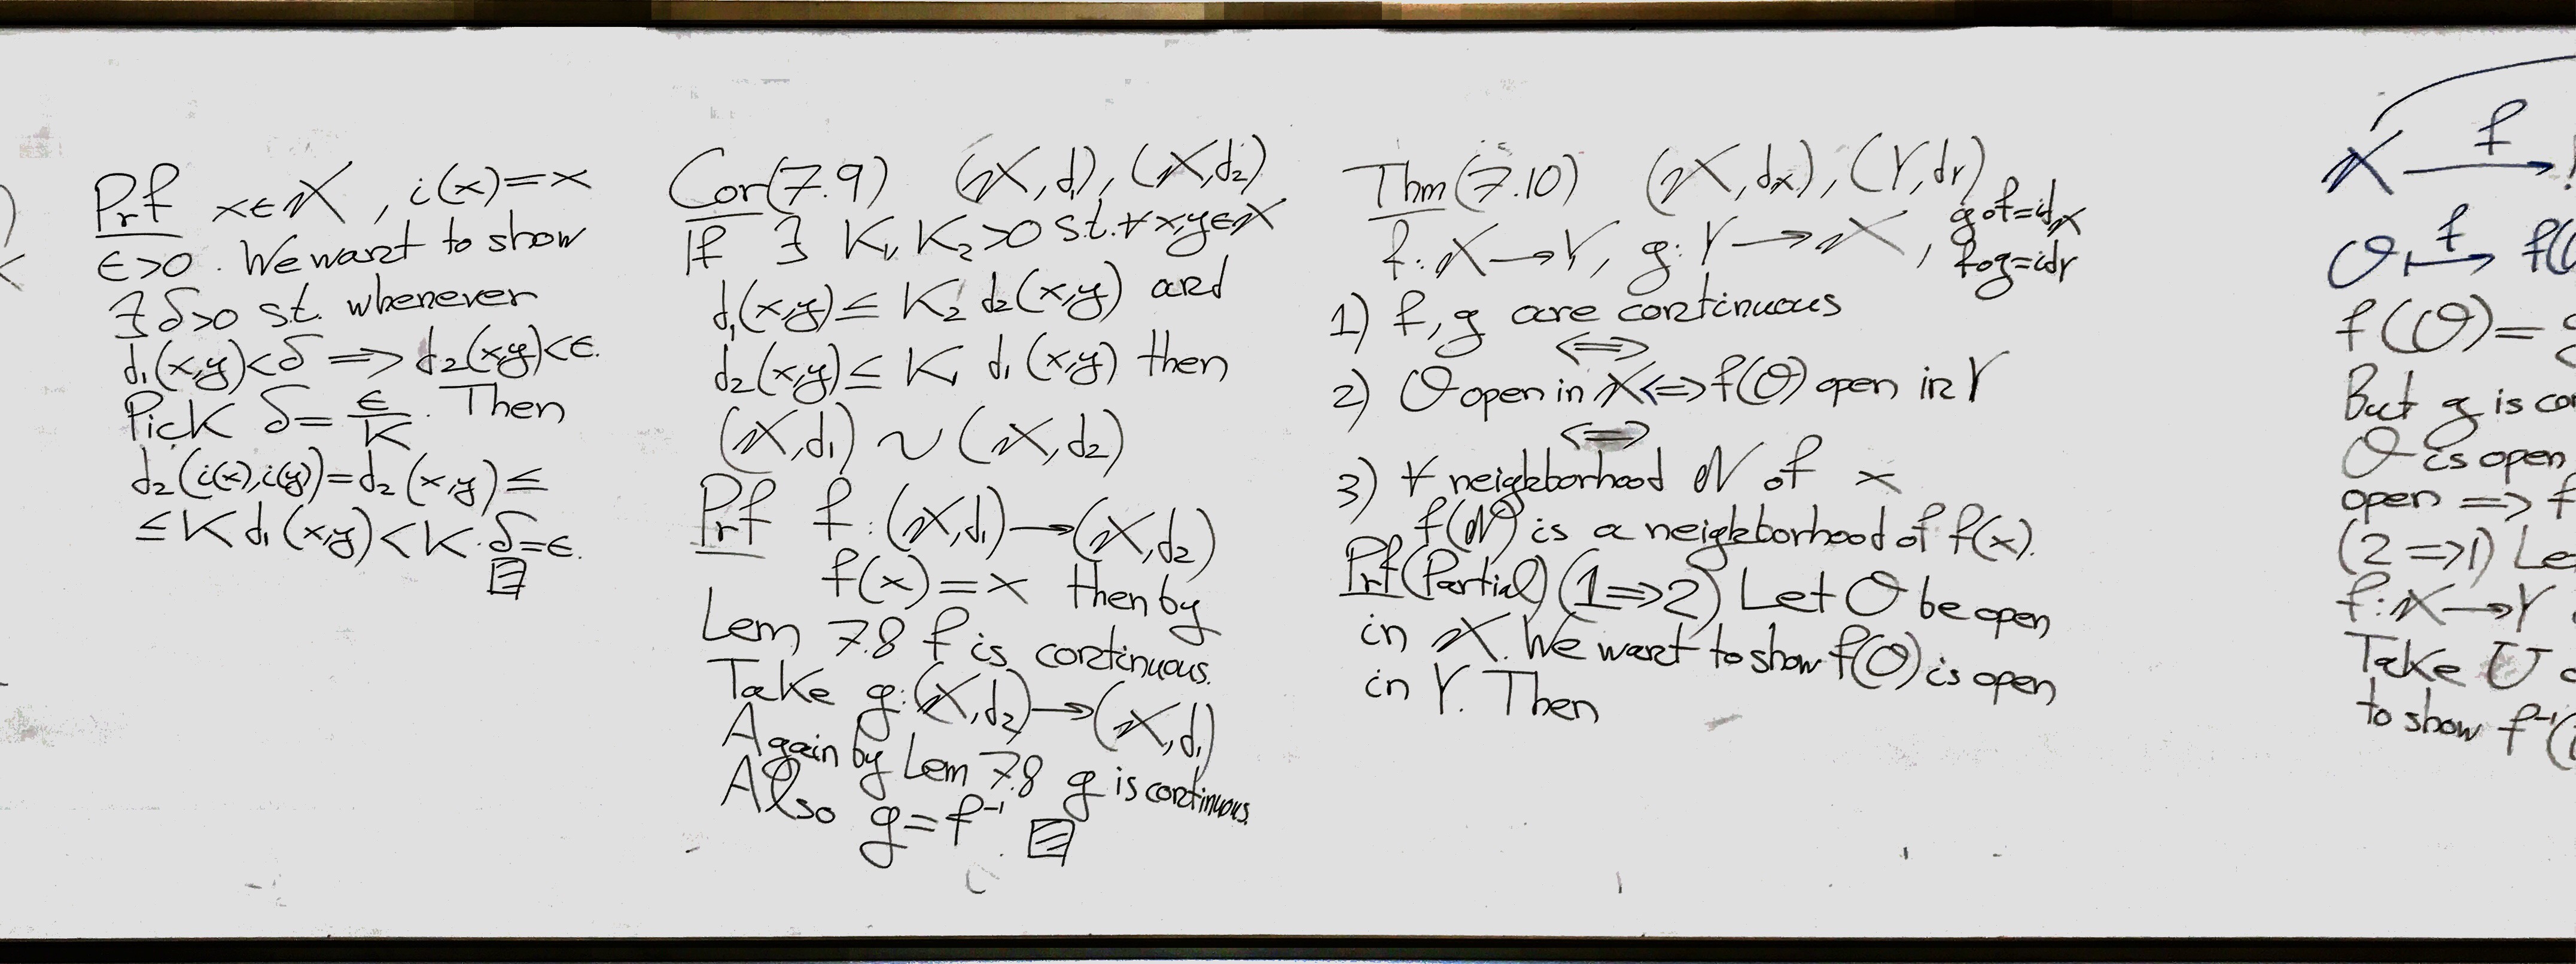 Prf x∈X, i(x)=x
ϵ>0. We want to show
∃ δ>0 s.t. whenever
d₁(x,y)<δ ⟹ d₂(x,y)<ϵ.
Pick δ= ϵ/K. Then
d₂(i(x),i(y))=d₂(x,y)≤
≤K d₁(x,y)<K·δ=ϵ.
Cor(7.9) (X,d₁),(X,d₂)
If ∃ K₁,K₂>0 s.t. ∀x,y∈X
d₁(x,y)≤ K₂ d₂(x,y) and
d₂(x,y)≤ K₁ d₁(x,y) then
(X,d₁) ~ (X,d₂)
Prf f:(X,d₁)→(X,d₂)
f(x)=x then by
Lem 7.8 f is continuous.
Take g:(X,d₂)→(X,d₁)
Again by Lem 7.8 g is continuous.
Also g=f⁻¹.
Thm(7.10) (X,dx),(Y,dY)
f:X→Y, g:Y→X, g∘f=idX
f∘g=idY
1) f,g are continuous
⟺
2) O open in X⟺f(O) open in Y
⟺
3) ∀ neighborhood N of x
f(N) is a neighborhood of f(x).
Prf(Partial)(1⟹2) Let O be open
in X. We want to show f(O) is open
in Y. Then
X f→
O f↦ f(
f(O)=
But g is
O is open
open ⟹ f
(2⟹1)
f:X→Y
Take U
to show f⁻¹(